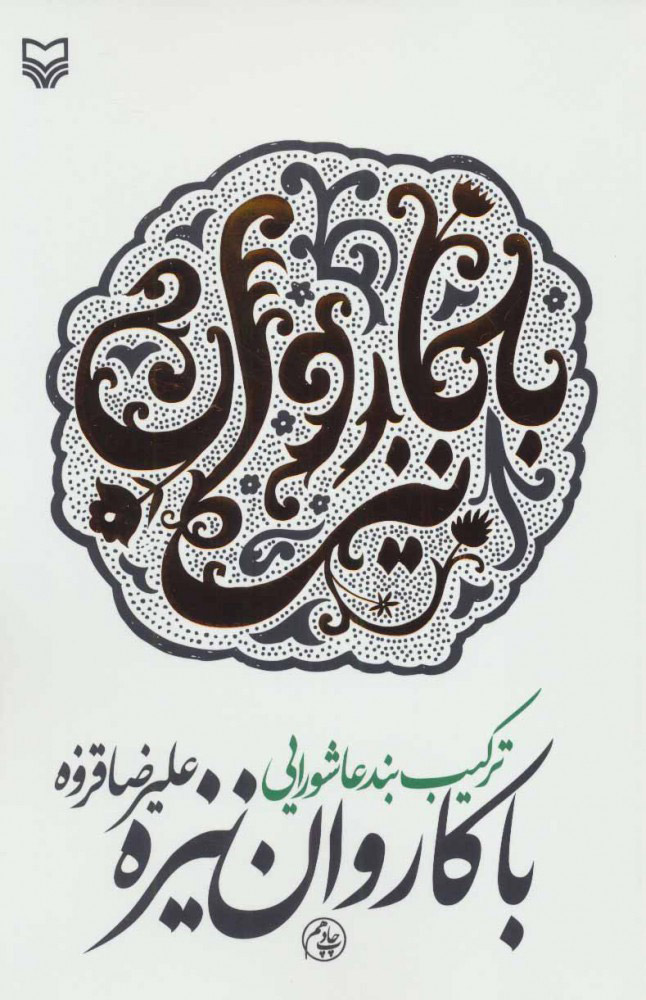 با کاروان نیزه
ترکیب بند عاشورایی
علیرضا قزوه
با کاروان نیزه
چاپ دهم